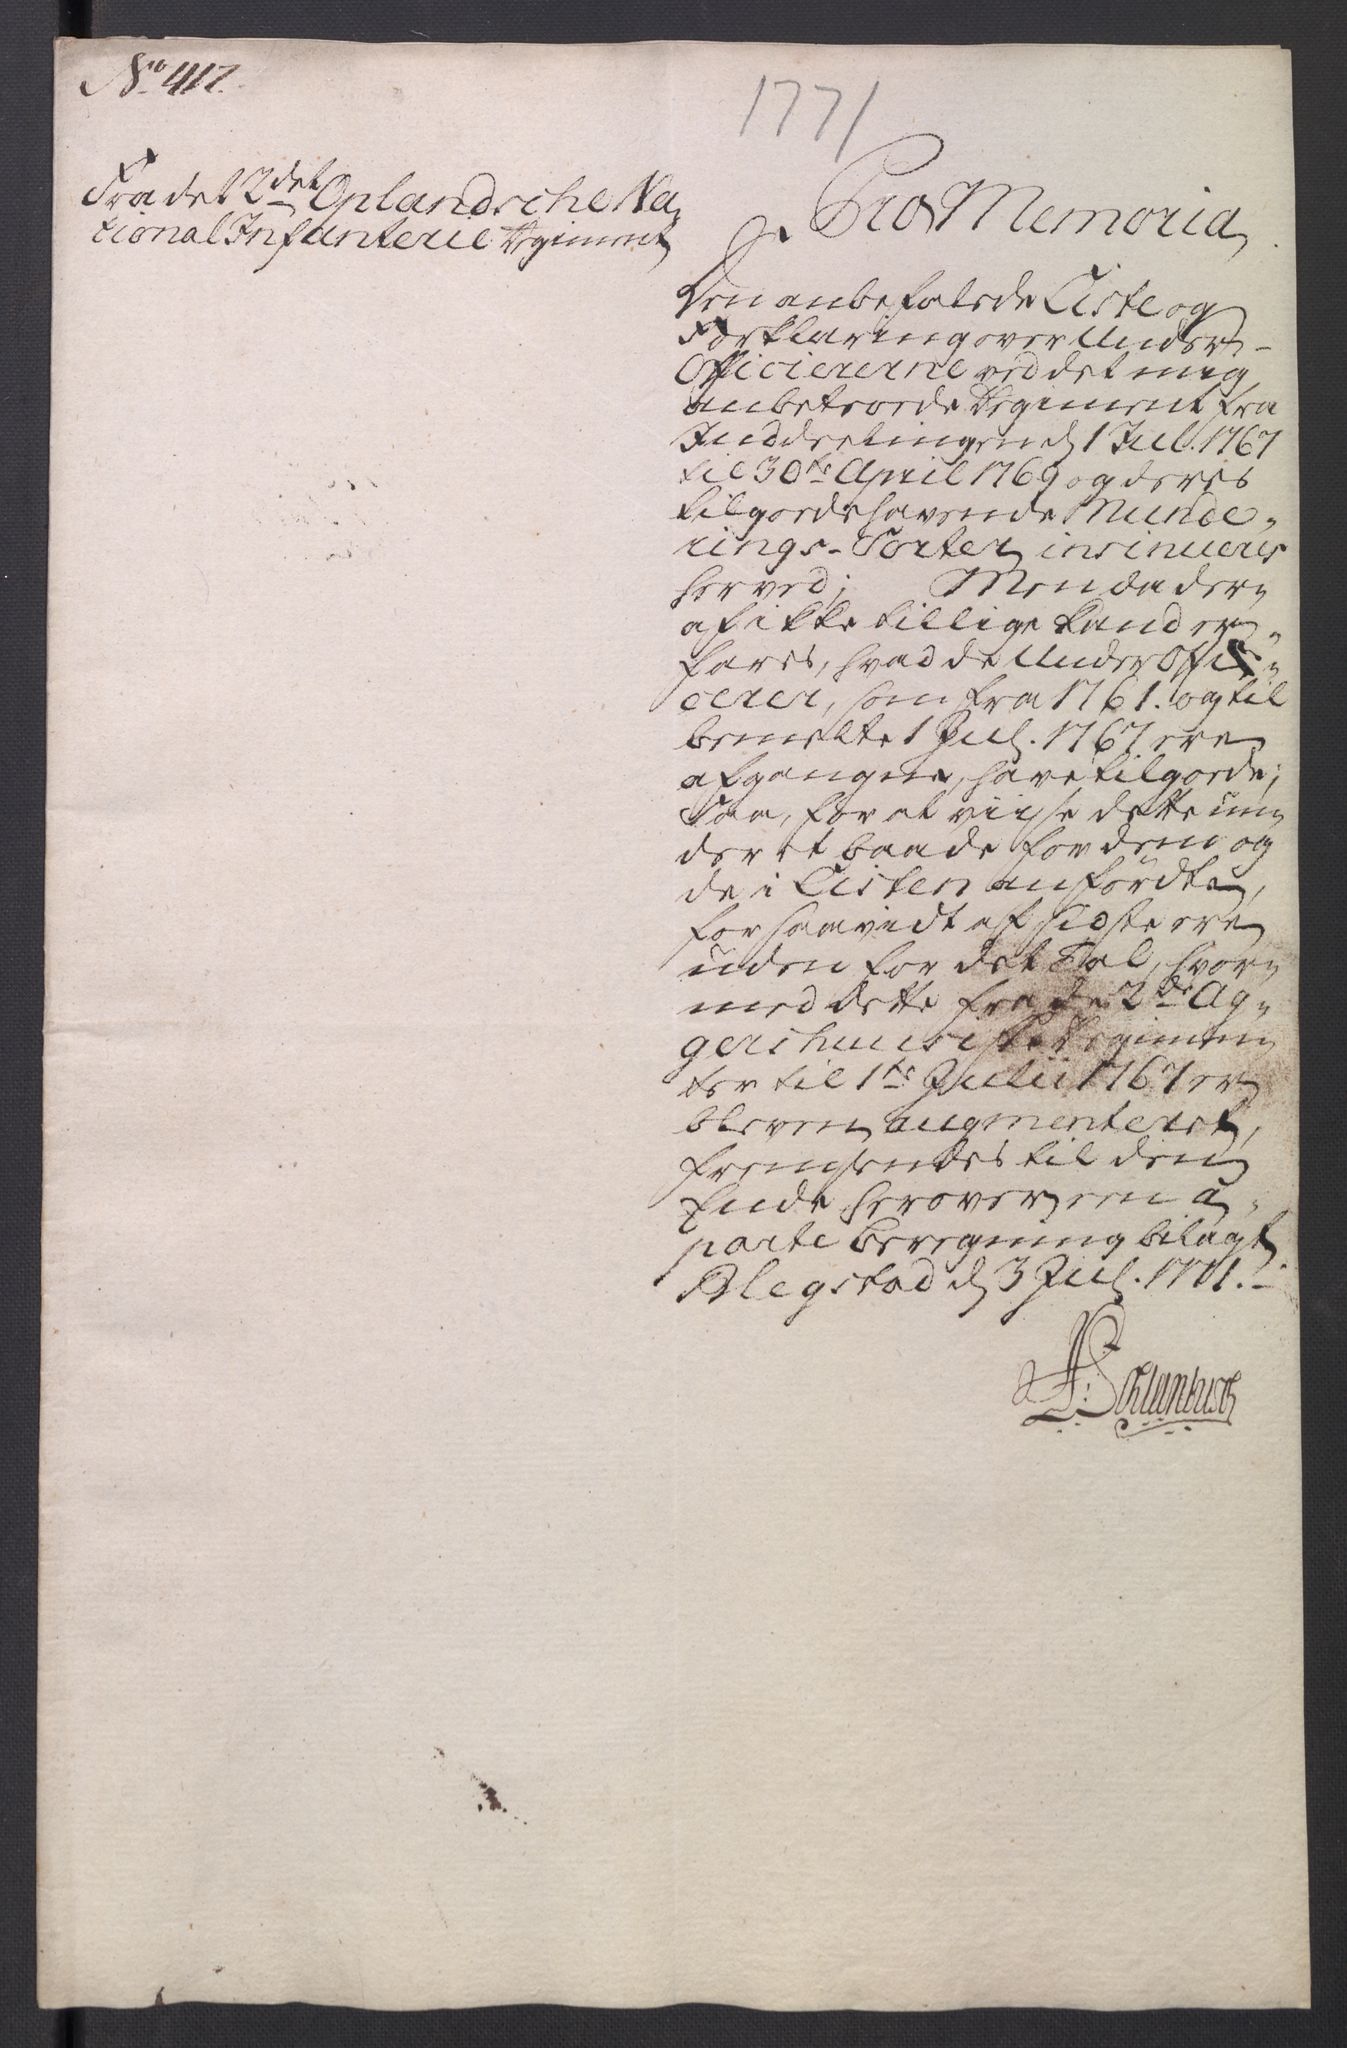 No 417.
1771
Fra det 2det Oplandsche Na-
tional Infanterie Regiment
Pro Memoria
Den anbefalede Liste og
Forklaring over Under-
Officiererne ved det mig
anbetroede Regiment fra
Inddeelingen d 1 Jul. 1767
til 30te April 1769 og deres
tilgodehavende Munde-
rings-Sorter insinueres
herved; Men da der-
af ikke tillige kand er-
fares, hvad de UnderOffi-
cerer, som fra 1761. og til
bemelte 1 Jul. 1767 ere
afgangne, have tilgode;
Saa, for at viise dette un-
der et baade for dem og
de i Listen anførdte,
forsaavidt af sidste ere
uden for det Tal, hvor-
med dette fra de 2de Ag-
gershuusiske Regimen
ter til 1te Julii 1767 er
bleven augmenteret,
fremsendes til den
Ende herover een a-
parte Beregning bilagt
Blegstad d 3 Jul. 1771.
F: Schlanbusch